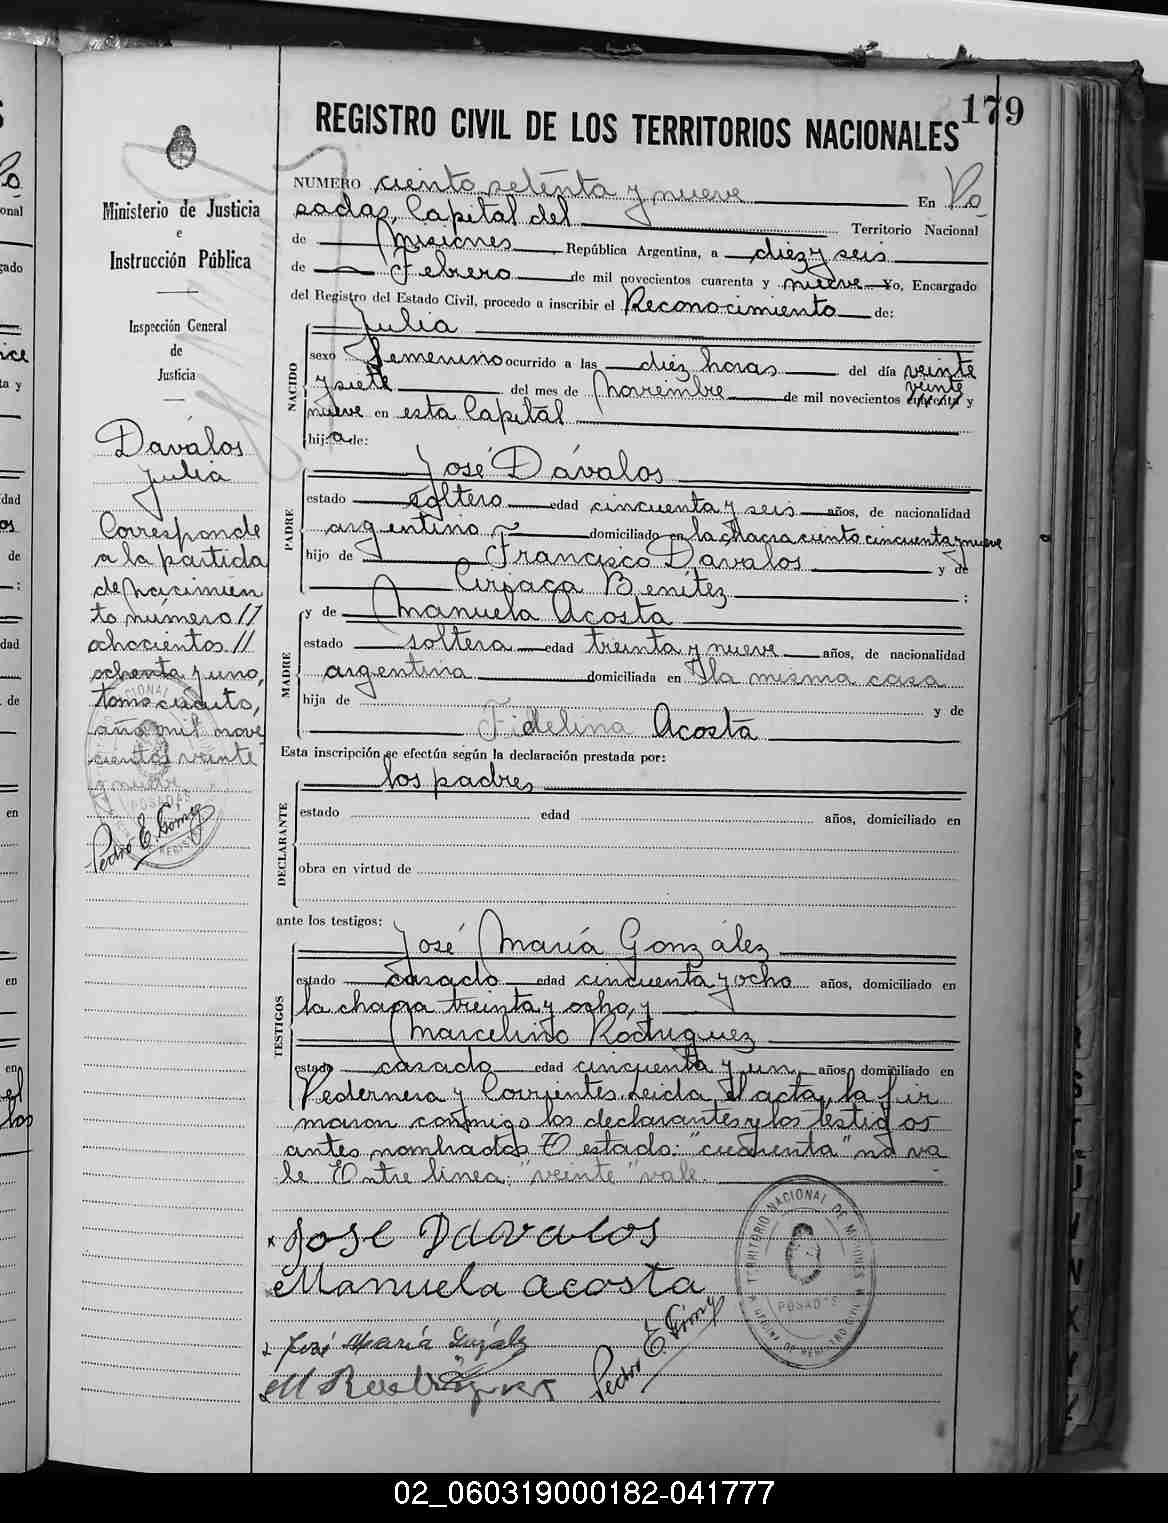 179
REGISTRO CIVIL DE LOS TERRITORIOS NACIONALES
Ministerio de Justicia
e
Instrucción Pública
Inspección General
de
Justicia
Dávalos
Julia
Corresponde
a la partida
de nacimien
to número //
ochocientos //
ochenta y uno,
tomo cuarto,
año mil nove
cientos veinte
y nueve
Pedro E. Gómez
NUMERO ciento setenta y nueve En Po
sadas, Capital del Territorio Nacional
de Misiones República Argentina, a diez y seis
de Febrero de mil novecientos cuarenta y nueve Yo, Encargado
del Registro del Estado Civil, procedo a inscribir el Reconocimiento de:
NACIDO
Julia
sexo femenino ocurrido a las diez horas del día veinte
y siete del mes de Noviembre de mil novecientos cuarenta y
veinte
nueve en esta Capital
hija de:
PADRE
José Dávalos
estado soltero edad cincuenta y seis años, de nacionalidad
argentino domiciliado en la chacra ciento cincuenta y nueve
hijo de Francisco Dávalos y de
Ciriaca Benítez ;
MADRE
y de Manuela Acosta
estado soltera edad treinta y nueve años, de nacionalidad
argentina domiciliada en la misma casa
hija de y de
Fidelina Acosta
Esta inscripción se efectúa según la declaración prestada por:
los padres
DECLARANTE
estado edad años, domiciliado en
obra en virtud de
ante los testigos:
TESTIGOS
José María González
estado casado edad cincuenta y ocho años, domiciliado en
la chacra treinta y ocho, y
Marcelino Rodríguez
estado casado edad cincuenta y un años, domiciliado en
Pedernera y Corrientes. Leida el acta, la fir
maron conmigo los declarantes y los testigos
antes nombrados. T estado: "cuarenta" no va
le. Entre linea: "veinte" vale.
José Davalos
Manuela acosta
José María González
M Rodríguez
Pedro E. Gómez
TERRITORIO NACIONAL DE MISIONES
POSADAS
OFICINA DE REGISTRO CIVIL
02_060319000182-041777